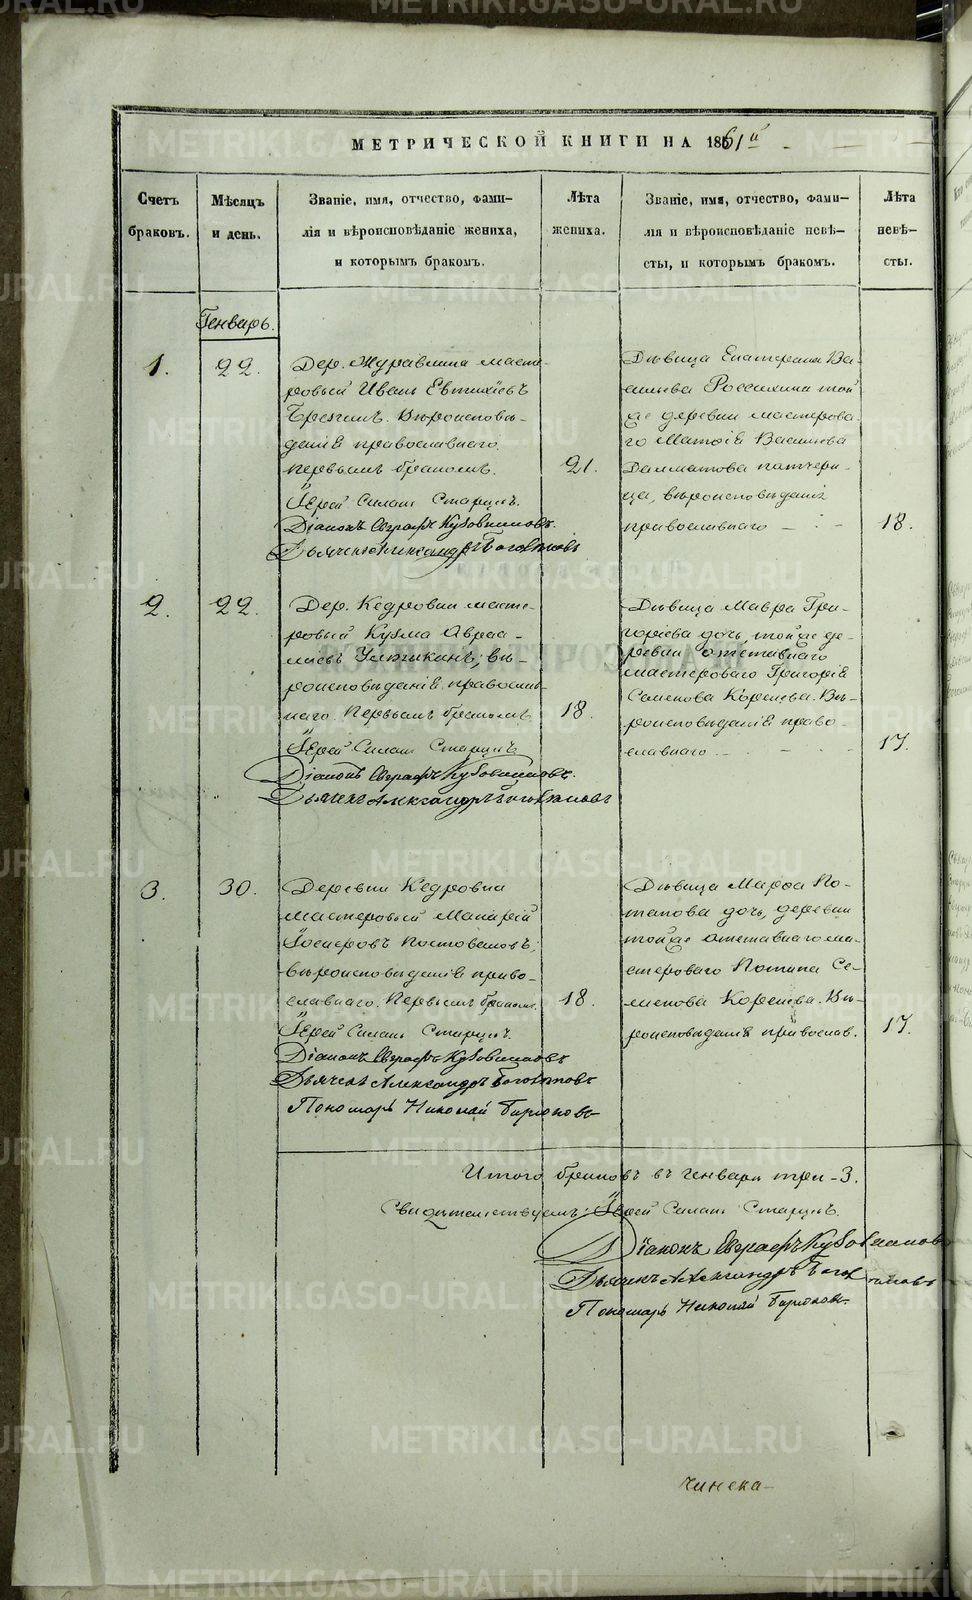 МЕТРИЧЕСКОЙ КНИГИ НА 1861й
Счетъ браковъ.
Мѣсяцъ и день.
Званіе, имя, отчество, фами-
лія и вѣроисповѣданіе жениха,
и которымъ бракомъ.
Лѣта
жениха.
Званіе, имя, отчество, фами-
лія и вѣроисповѣданіе невѣ-
сты, и которымъ бракомъ.
Лѣта
невѣ-
сты.
Генварь.
1.
22.
Дер. Журавлина масте-
ровый Иванъ Евтихіевъ
Вѣроисповѣ-
данія православнаго.
первымъ бракомъ.
21.
Іерей Силанъ Старцинъ.
Діаконъ Евграфъ Кубовшановъ.
Дьячекъ Александръ
Дѣвица Екатерина Ва-
сильева той
же деревни мастерова-
го Василіева
Далматова падчери-
ца, вѣроисповѣданія
православнаго
18.
2.
22.
Дер. Кедровки масте-
ровый Кузма Авраа-
мовъ вѣ-
роисповѣданія правосла-
внаго. Первымъ бракомъ
18.
Іерей Силанъ Старцинъ
Діаконъ Евграфъ Кубовшановъ.
Дьячекъ Александръ
Дѣвица Мавра Гри-
горіева дочь, той же де-
ревни отставнаго
мастероваго Григорія
Семенова Корелева. Вѣ-
роисповѣданія право-
славнаго
17.
3.
30.
Деревни Кедровки
мастеровый Макарій
вѣроисповѣданія право-
славнаго. Первымъ бракомъ.
18.
Іерей Силанъ Старцинъ.
Діаконъ Евграфъ Кубовшановъ
Дьячекъ Александръ
Пономарь Николай Бирюковъ
Дѣвица Марѳа По-
тапова дочь, деревни
той же отставнаго ма-
стероваго Потапа Се-
менова Корелева. Вѣ-
роисповѣданія православ.
17.
Итого браковъ въ генварѣ три - 3.
Свидѣтельствуемъ: Іерей Силанъ Старцинъ.
Діаконъ Евграфъ Кубовшановъ
Дьячекъ Александръ
Пономарь Николай Бирюковъ.
METRIKI.GASO-URAL.RU